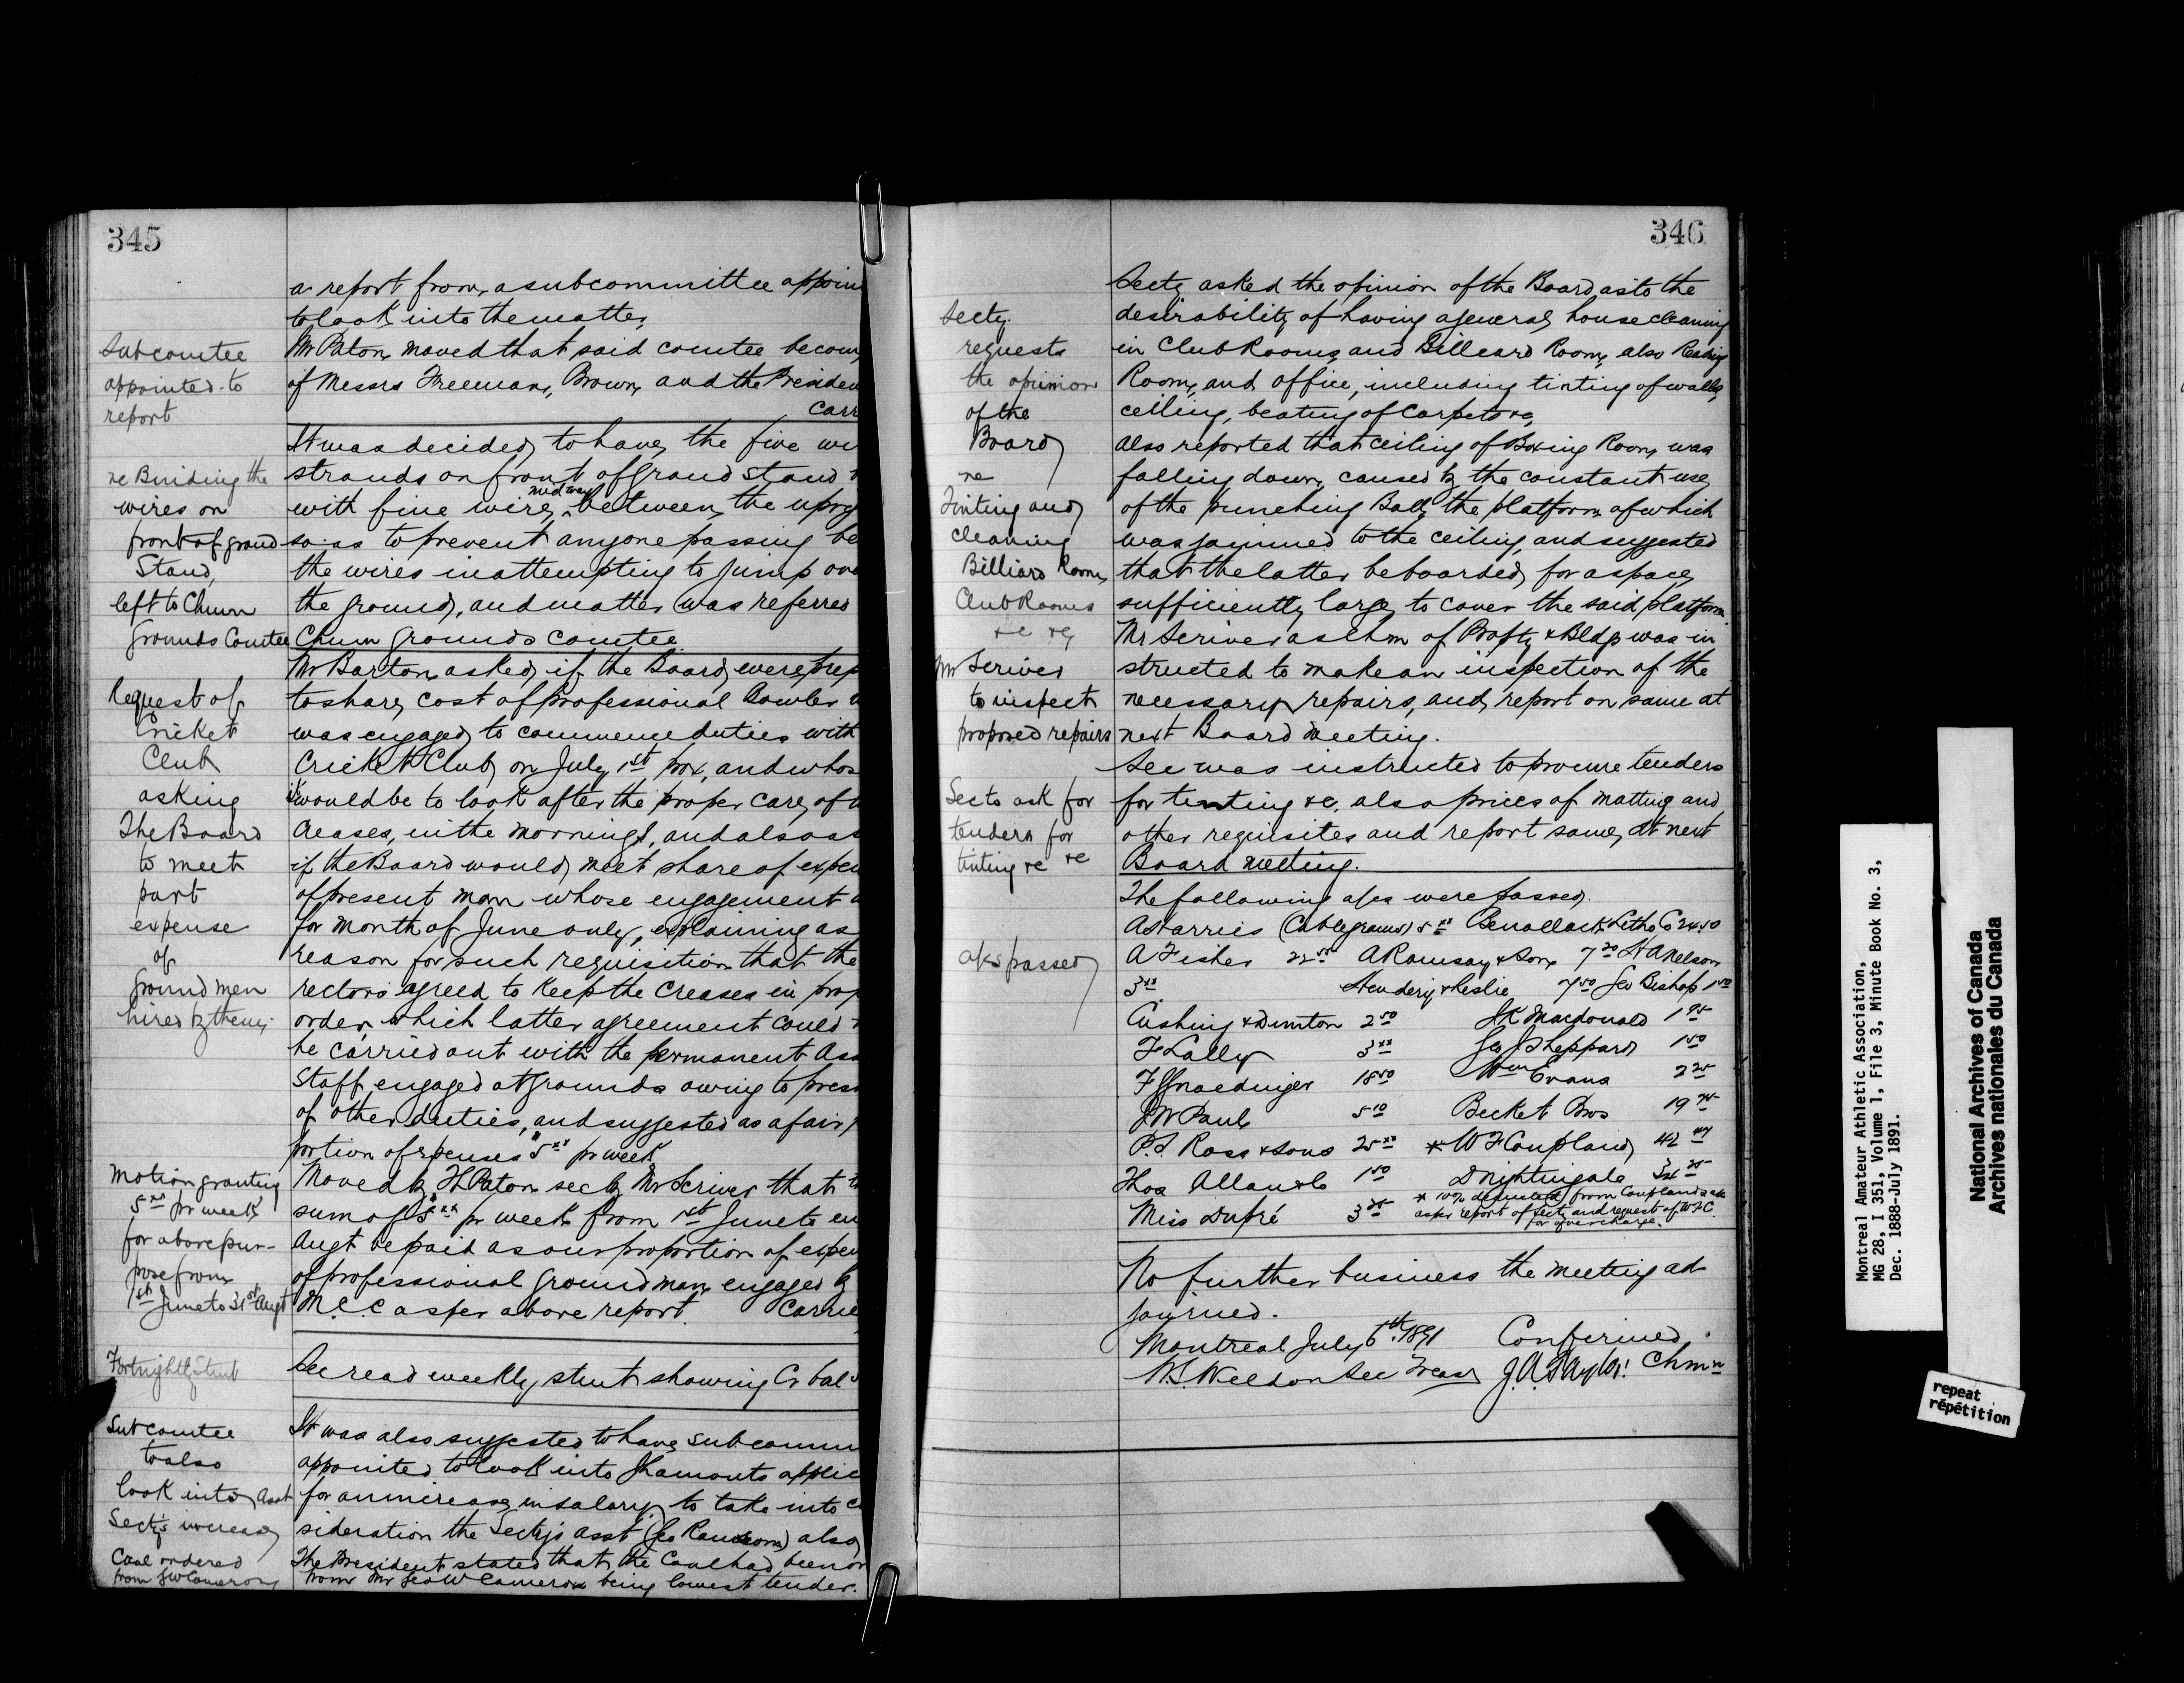 345
a report from a subcommittee appoin
to look into the matter,
Subcomtee
appointed to
report
Mr Paton moved that said comtee become
of Messrs Freeman, Brown and the Presiden
Carr
re Binding the
wires on
front of grand
Stand,
left to Chmn
Grounds Comtee
It was decided to have the five wi
strands on front of Grand Stand
with fine wire, midway between the uprig
so as to prevent anyone passing be
the wires in attempting to jump ove
the ground, and matter was referred
Chmn Grounds comtee
Request of
Cricket
Club
asking
The Board
to meet
part
expense
of
ground men
hired by them
Mr Barton asked if the Board were prep
to share cost of professional Bowler
was engaged to commence duties with
Cricket Club on July 1st prox, and whos
would be to look after the proper care of
Creases, in the mornings, and also as
if the Board would meet share of expen
of present man whose engagement
for month of June only, explaining as
reason for such requisition that the
rectors agreed to keep the Creases in prop
order, which latter agreement could
be carried out with the permanent Ass
Staff engaged at Grounds owing to press
of other duties, and suggested as a fair p
portion of expenses $5xx pr week
Motion granting
5xx pr week
for above pur-
pose from
1st June to 31st Augt
Moved by H Paton sec by Mr Scriver that th
sum of $5xx pr week from 1st June to en
Augt be paid as our proportion of expen
of professional ground man engaged by
M.C.C as per above report. Carrie
Fortnightly Stmt
Sec read weekly stmt showing Cr bal
Sub comtee
to also
look into Asst
Secty's increase
It was also suggested to have subcomm
appointed to look into Lamonts applic
for an increase in salary, to take into c
sideration the Secty's asst (Geo Ransom) also
Coal ordered
from GW Cameron
The President stated that the Coal had been or
from Mr Geo W Cameron being lowest tender.
346
Secty
requests
the opinion
of the
Board
re
Tinting and
cleaning
Billiard Room,
Club Rooms
&c &c
Mr Scriver
to inspect
proposed repairs
Secty asked the opinion of the Board as to the
desirability of having a general housecleaning
in Club Rooms and Billiard Room, also Reading
Room, and office, including tinting of walls,
ceiling, beating of Carpets &c,
also reported that ceiling of Boxing Room was
falling down, caused by the constant use
of the punching Ball, the platform of which
was joined to the ceiling, and suggested
that the latter be boarded for a space
sufficiently large to cover the said platform
Mr Scriver as Chm of Propty & Bldg was in
structed to make an inspection of the
necessary repairs, and report on same at
next Board Meeting.
Sec to ask for
tenders for
tinting &c &c
Sec was instructed to procure tenders
for tinting &c, also prices of matting and
other requisites and report same, at next
Board meeting.
a/cs passed
The following a/cs were passed.
A Harries (Cablegrams) 5xx Benallack Litho Co 24.50
A Fisher 22 50 A Ramsay & Son 7 20 H A Nelson
3xx Hendery & Leslie 7 50 Geo Bishop 1 50
Cushing & Dunton 2 50 JK Macdonald 1 95
F Lally 3xx Geo J Sheppard 1 50
F Gnaedinger 18 50 Wm Evans 2 25
JW Paul 5 10 Becket Bros 19 75
P.S. Ross & Sons 25xx * W F Coupland 42 47
Thos Allan & Co 1 50 D Nightingale
Miss Dupré 3 25
* 10% deducted from Couplands a/c
as per report of Secty and request of W F C.
for overcharge.
No further business the meeting ad
journed.
Montreal July 6th 1891 Confirmed
W.S. Weldon Sec Treas J.A. Taylor. Chmn
Montreal Amateur Athletic Association,
MG 28, I 351, Volume 1, File 3, Minute Book No. 3,
Dec. 1888-July 1891.
National Archives of Canada
Archives nationales du Canada
repeat
répétition